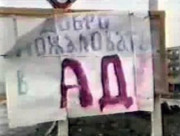 ДОБРО
ПОЖАЛОВАТЬ
В АД